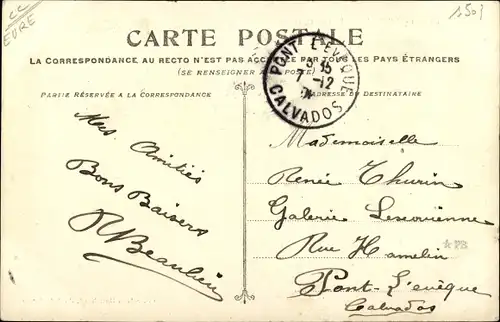 22
EURE
1.50f
CARTE POSTALE
LA CORRESPONDANCE AU RECTO N'EST PAS ACCEPTÉE PAR TOUS LES PAYS ÉTRANGERS
(SE RENSEIGNER A LA POSTE)
PARTIE RÉSERVÉE A LA CORRESPONDANCE
ADRESSE DU DESTINATAIRE
PONT L'EVÊQUE
7-12
CALVADOS
Mes Amitiés
Bons Baisers
R Beaulieu
Mademoiselle
Renée Thurin
Galerie
Rue Hamelin
Pont-L'evêque
Calvados